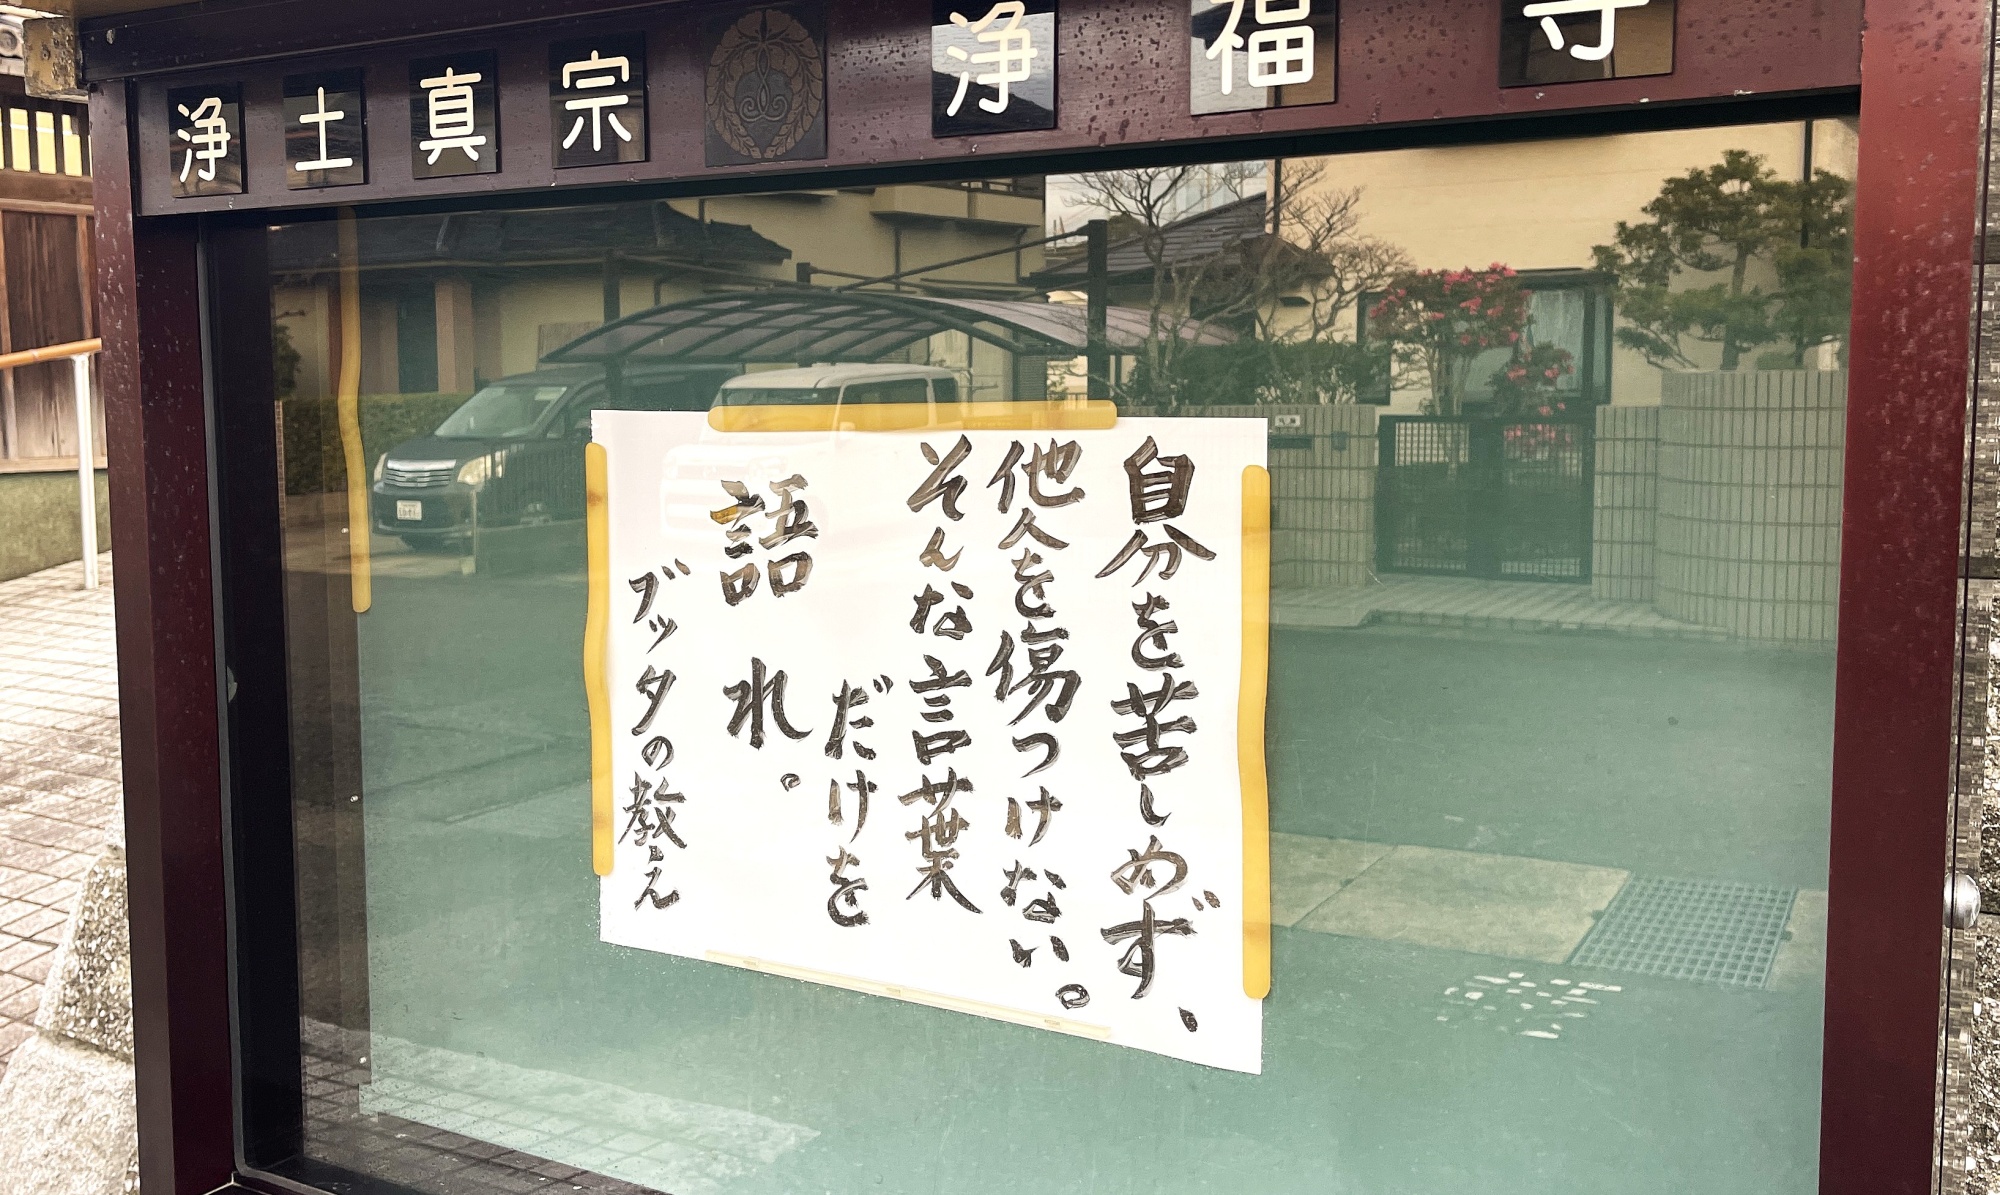 浄土真宗 浄福寺
自分を苦しめず、
他人を傷つけない。
そんな言葉
だけを
語れ。
ブッタの教え